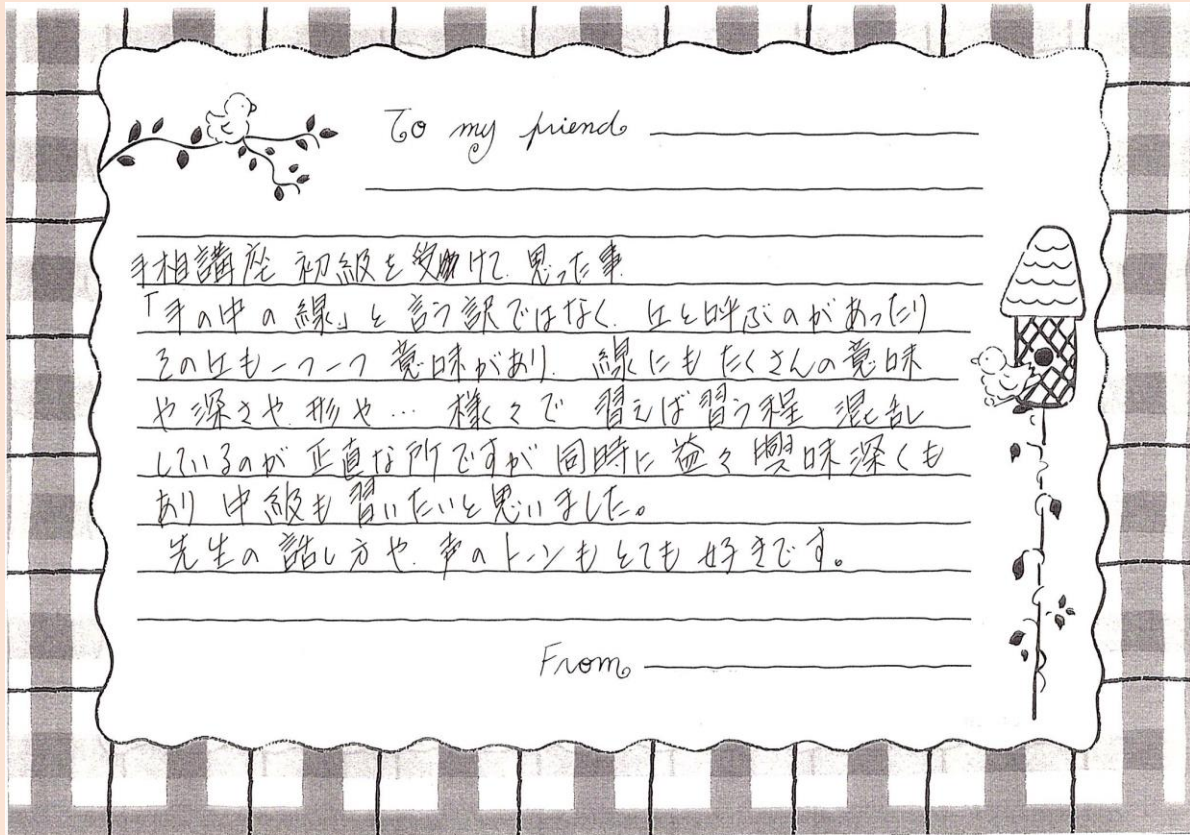 To my friend
手相講座 初級を受けて 思った事
「手の中の線」と言う訳ではなく 丘と呼ぶのがあったり
その丘も一つ一つ 意味があり 線にもたくさんの意味
や深さや 形や… 様々で 習えば習う程 混乱
しているのが正直な所ですが同時に益々興味深くも
あり 中級も習いたいと思いました。
先生の話し方や 声のトーンもとても好きです。
From